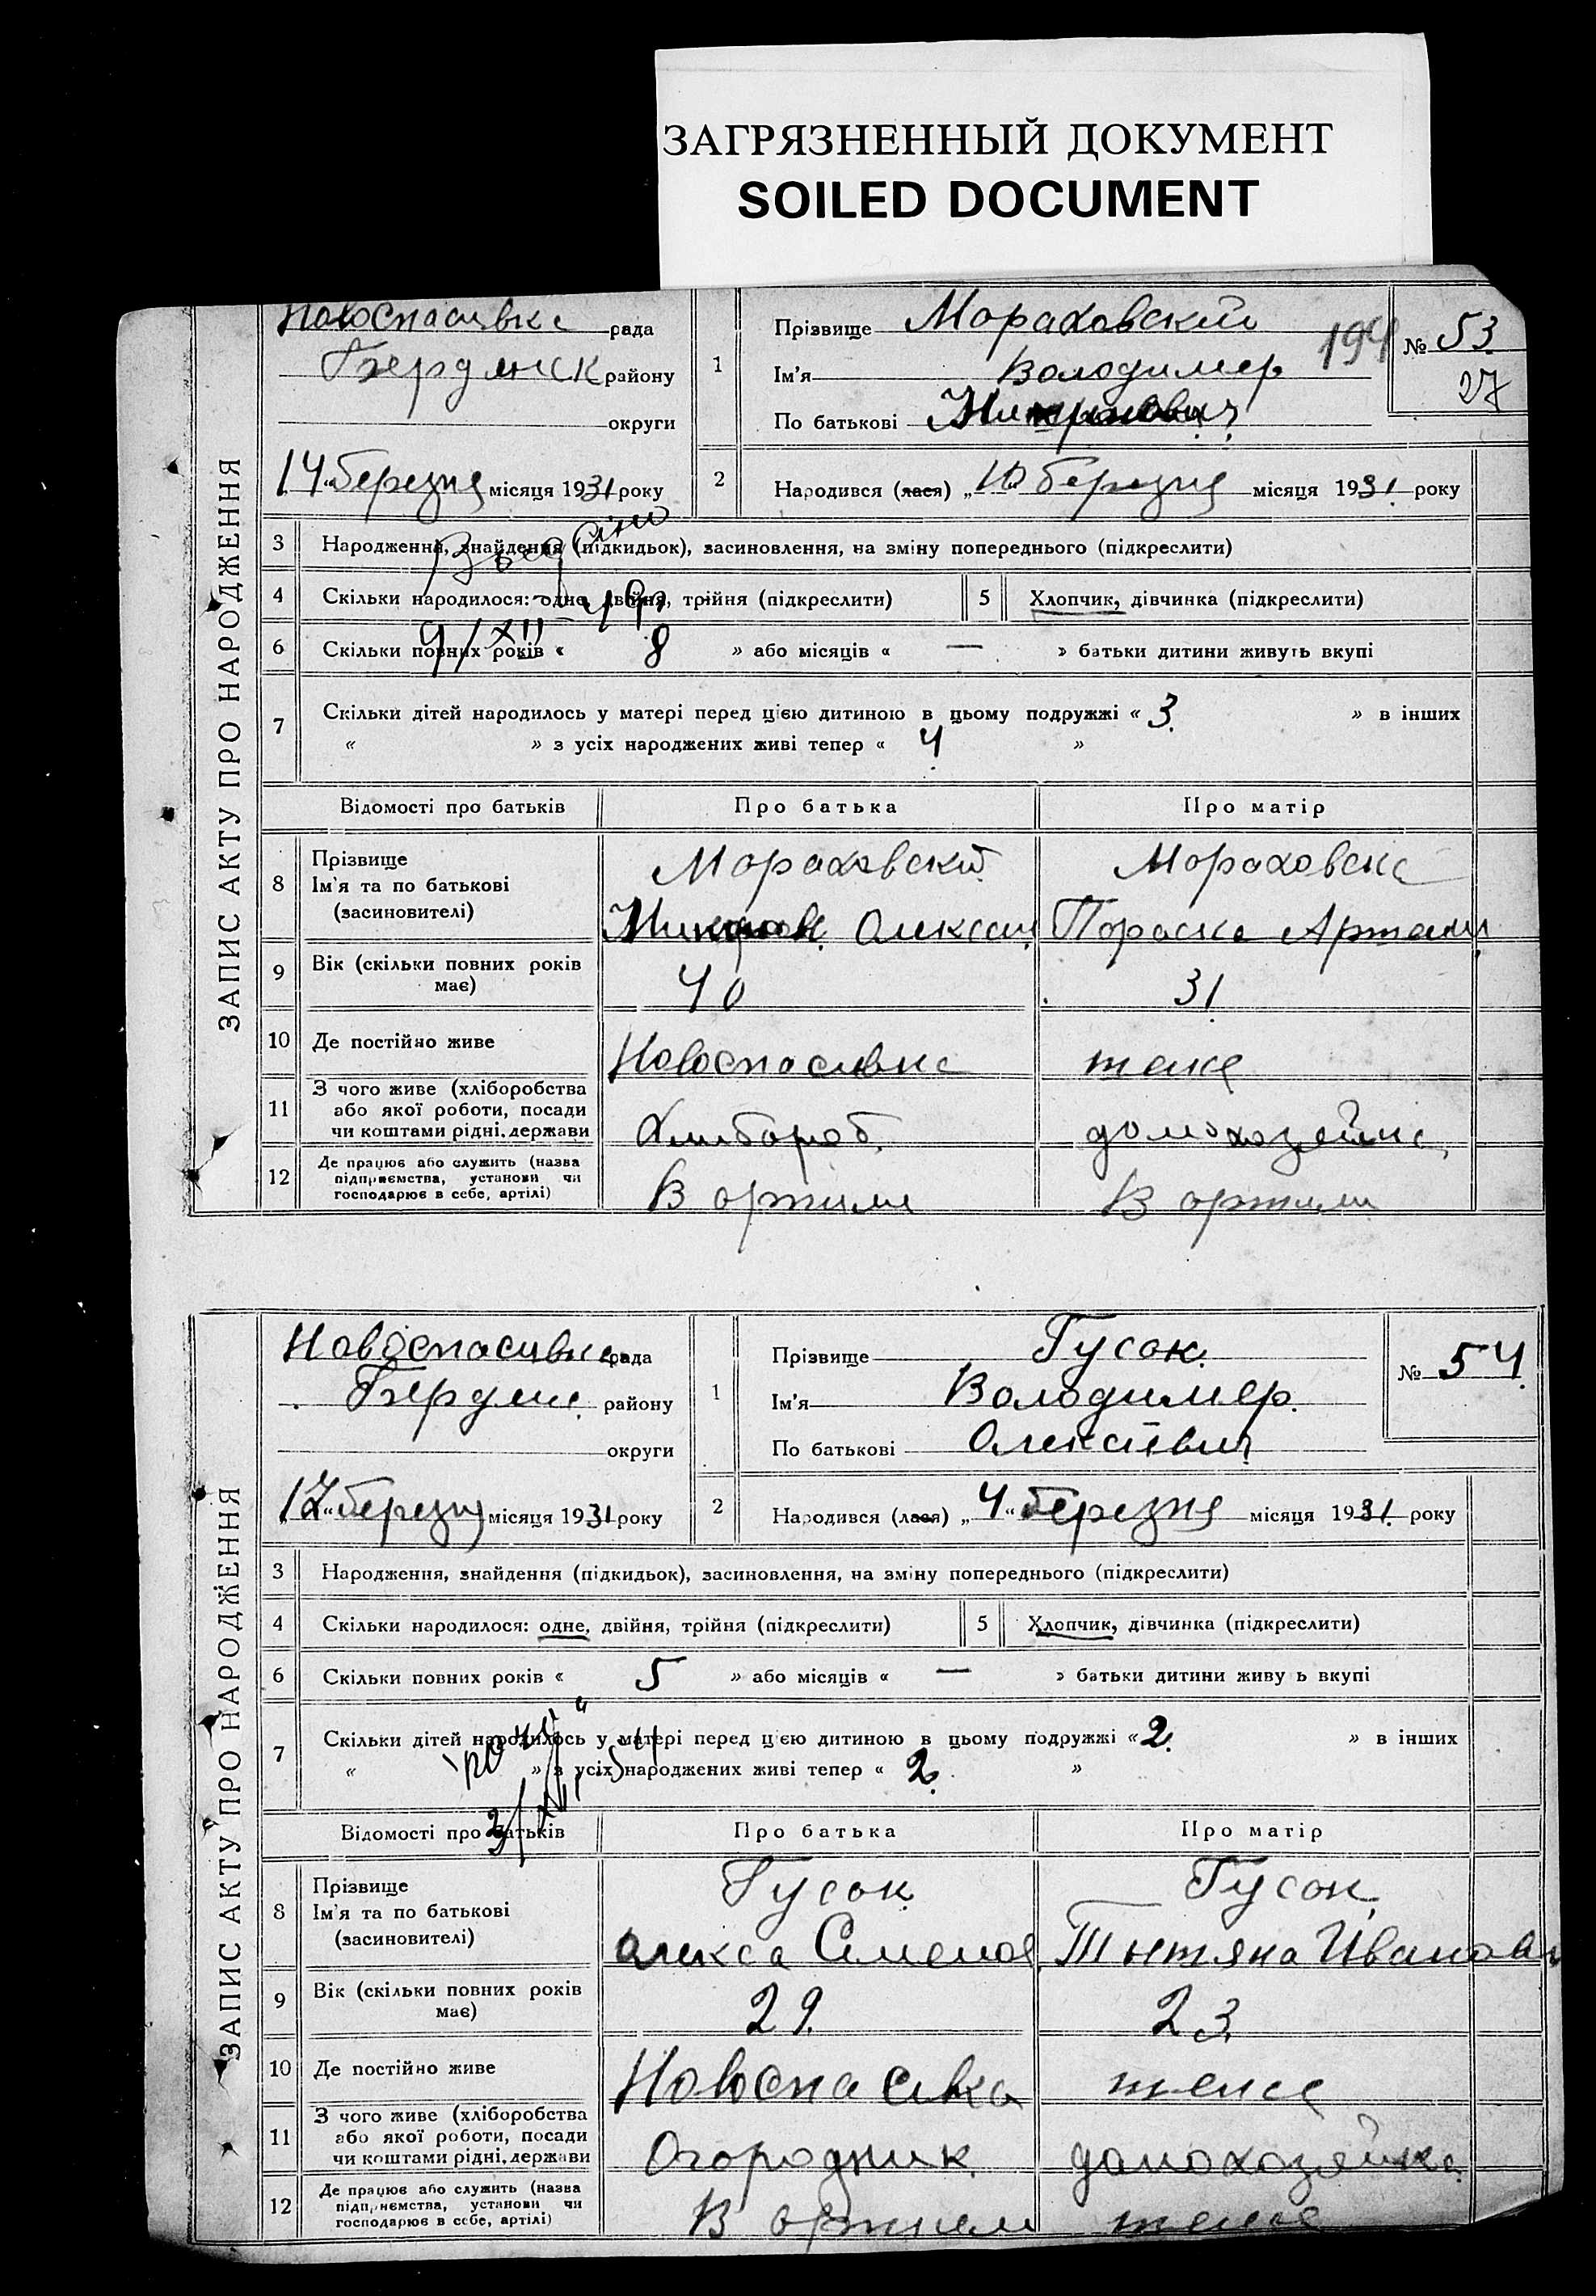 ЗАГРЯЗНЕННЫЙ ДОКУМЕНТ
SOILED DOCUMENT
ЗАПИС АКТУ ПРО НАРОДЖЕННЯ
Новоспасивка рада
Бердянск району
округи
14 „березня місяця 1931 року
1
Прізвище Мораховский
194
№ 53
27
Ім'я Володимер
По батькові
2
Народився (лася) „10 березня місяця 1931 року
3 Народження, знайдення (підкидьок), засиновлення, на зміну попереднього (підкреслити)
4 Скільки народилося: одне, двійня, трійня (підкреслити)
5 Хлопчик, дівчинка (підкреслити)
6 Скільки повних років « 8 » або місяців « — » батьки дитини живуть вкупі
9/XII
7 Скільки дітей народилось у матері перед цією дитиною в цьому подружжі « 3 » в інших
« » з усіх народжених живі тепер « 4 »
Відомості про батьків
Про батька
Про матір
8 Прізвище
Ім'я та по батькові
(засиновителі)
Мораховский
Олексан
Мораховска
Пораска Артеми
9 Вік (скільки повних років має)
40
31
10 Де постійно живе
Новоспасивка
теже
11 З чого живе (хліборобства
або якої роботи, посади
чи коштами рідні, держави
Хлибороб
домохозяйка
12 Де працює або служить (назва
підприємства, установи чи
господарює в себе, артілі)
В артили
В артили
ЗАПИС АКТУ ПРО НАРОДЖЕННЯ
Новоспасивка рада
Бердянс району
округи
17 „березня місяця 1931 року
1
Прізвище Гусак
№ 54
Ім'я Володимер
По батькові Олексієвич
2
Народився (лася) „4 „березня місяця 1931 року
3 Народження, знайдення (підкидьок), засиновлення, на зміну попереднього (підкреслити)
4 Скільки народилося: одне, двійня, трійня (підкреслити)
5 Хлопчик, дівчинка (підкреслити)
6 Скільки повних років « 5 » або місяців « — » батьки дитини живу ь вкупі
7 Скільки дітей народилось у матері перед цією дитиною в цьому подружжі « 2 » в інших
« » з усіх народжених живі тепер « 2 »
Відомості про батьків
Про батька
Про матір
8 Прізвище
Ім'я та по батькові
(засиновителі)
Гусак
Олекса Семенов
Гусак
Тытяна Ивановн
9 Вік (скільки повних років має)
29
23
10 Де постійно живе
Новоспасивка
теже
11 З чого живе (хліборобства
або якої роботи, посади
чи коштами рідні, держави
Огородник
домохозяйка
12 Де працює або служить (назва
підприємства, установи чи
господарює в себе, артілі)
В артили
теже